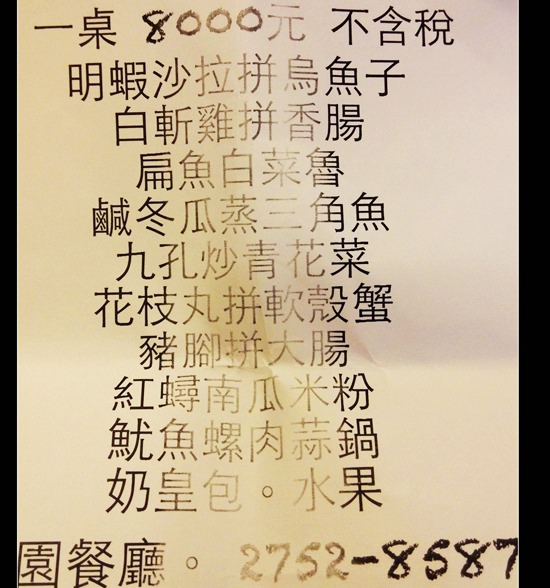 一桌 8000元 不含稅
明蝦沙拉拼烏魚子
白斬雞拼香腸
扁魚白菜魯
鹹冬瓜蒸三角魚
九孔炒青花菜
花枝丸拼軟殼蟹
豬腳拼大腸
紅蟳南瓜米粉
魷魚螺肉蒜鍋
奶皇包。水果
園餐廳。 2752-8587